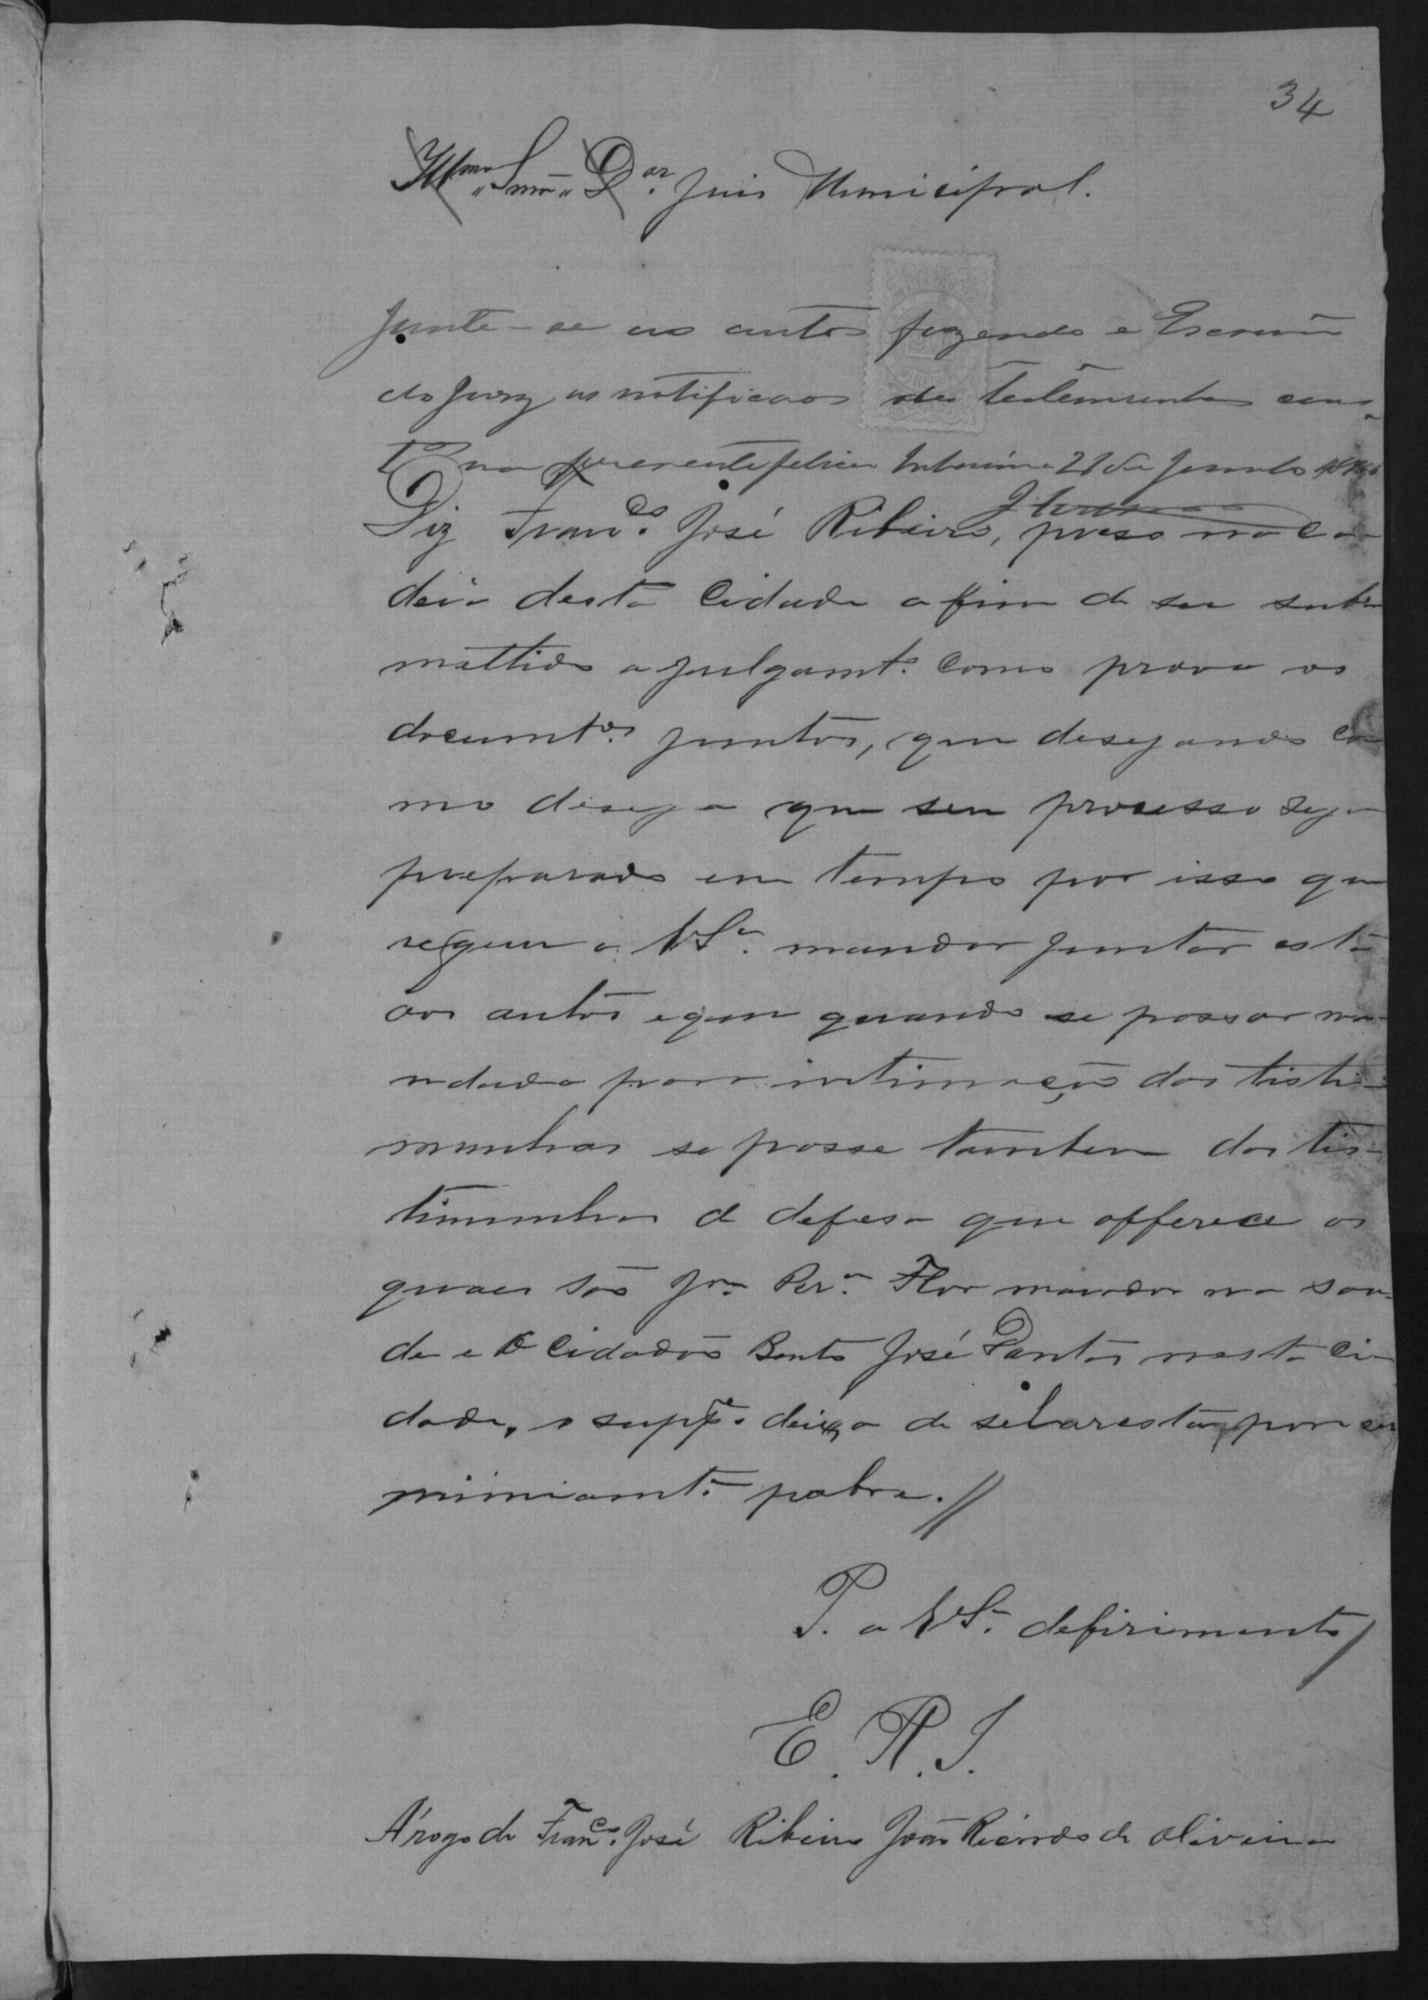 34
Illmo. Snr. Dor. Juis Municipal.
Junte-se aos autos fazendo o Escrivão
do Jury as notificaos das testemunhas cons
tes na presente petição 21 de Junho
Diz Franco. José Ribeiro, preso na ca-
deia desta Cidade a fim de ser sub
mettido a julgamto. como prova os
documtos. juntos, que desejando co
mo deseja que seu processo seja
preparado em tempo por isso que
requer a VSa. mandar juntar esta
aos autos e que quando se passar ma-
ndado para intimação das teste-
munhas se passe tambem das tes-
timunhas de defesa que offerece as
quaes são Jm. Pera. Flor morador na Sau-
de e o Cidadão Bento José Dantas nesta Ci-
dade, o suppe. deixa de selar esta por ser
miniamte. pobre. //
P. a VSa. defirimento /
E. R. J.
A rogo de Franco. José Ribeiro João Ricardo de Oliveira